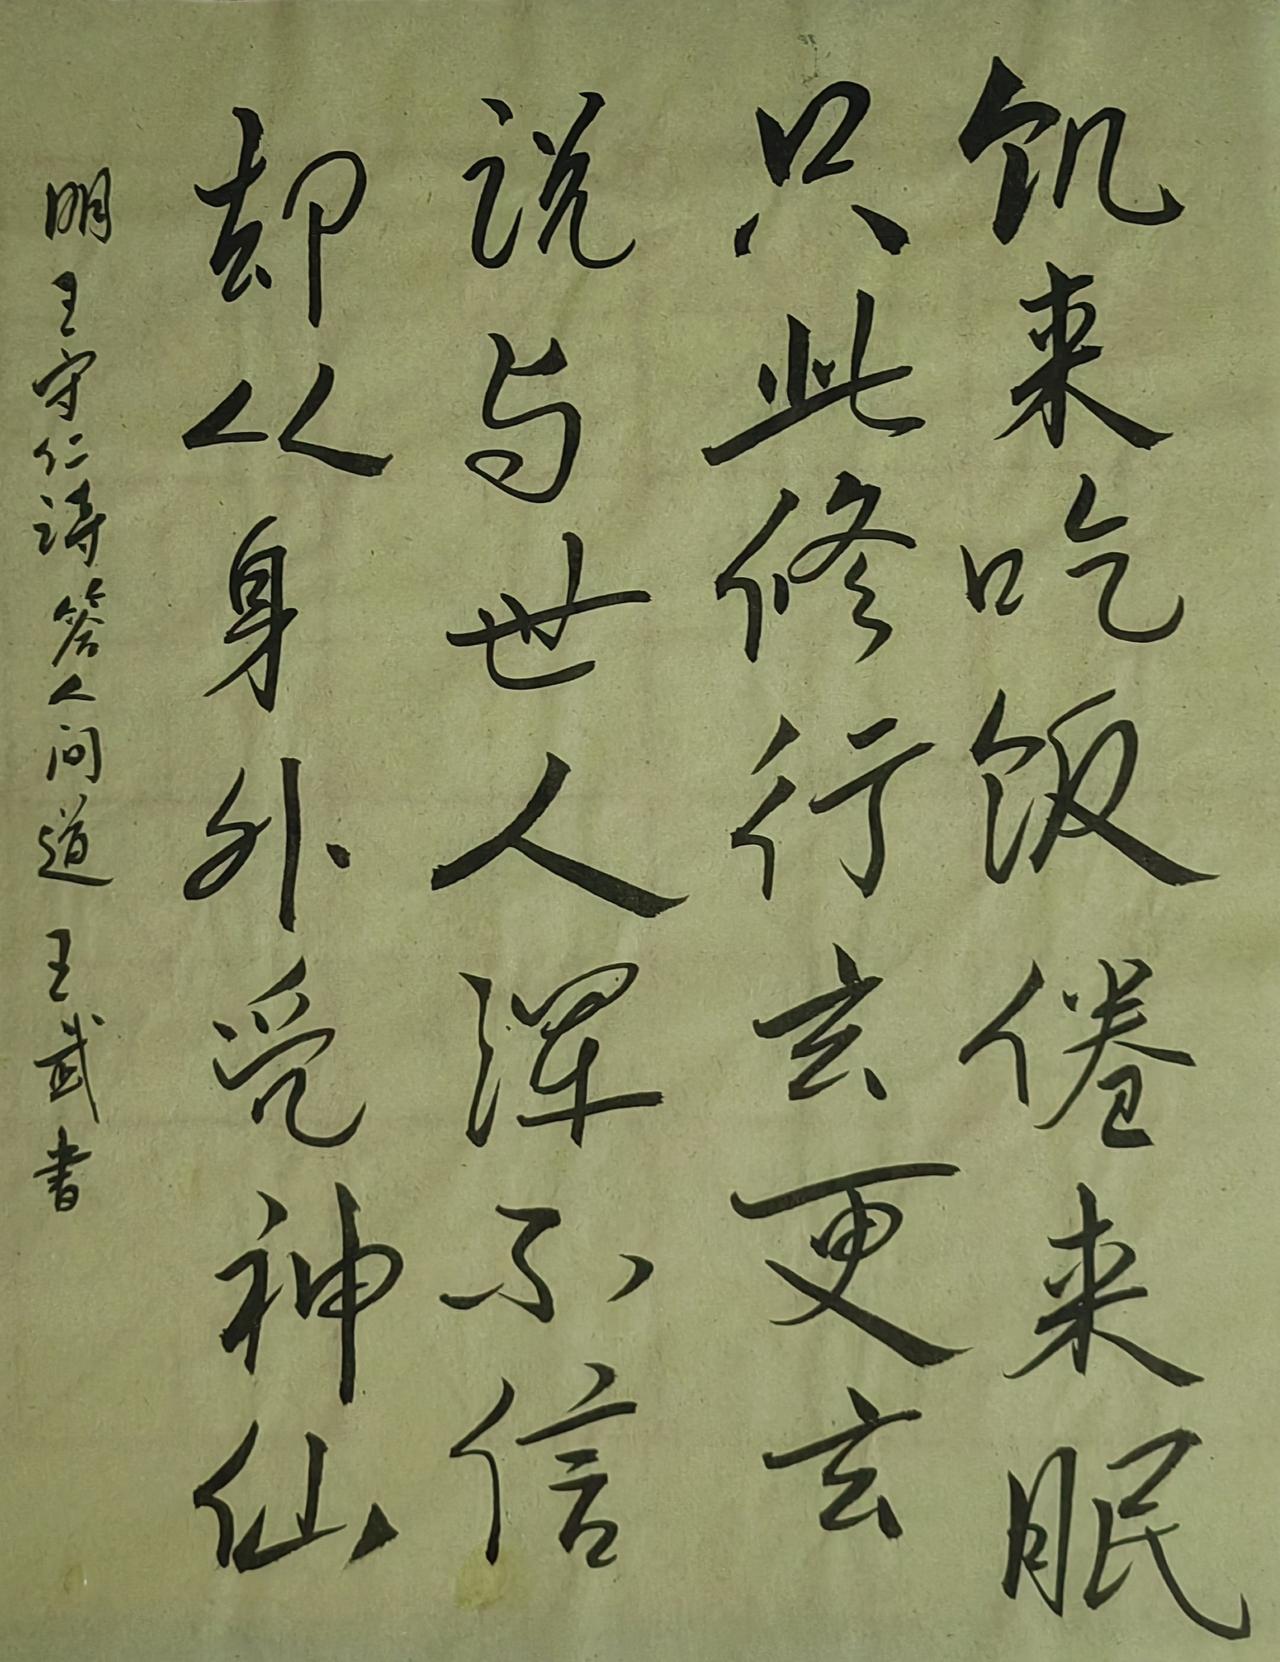 饥来吃饭倦来眠
只此修行玄更玄
说与世人浑不信
却从身外受神仙
明王守仁诗答人问道 王武书